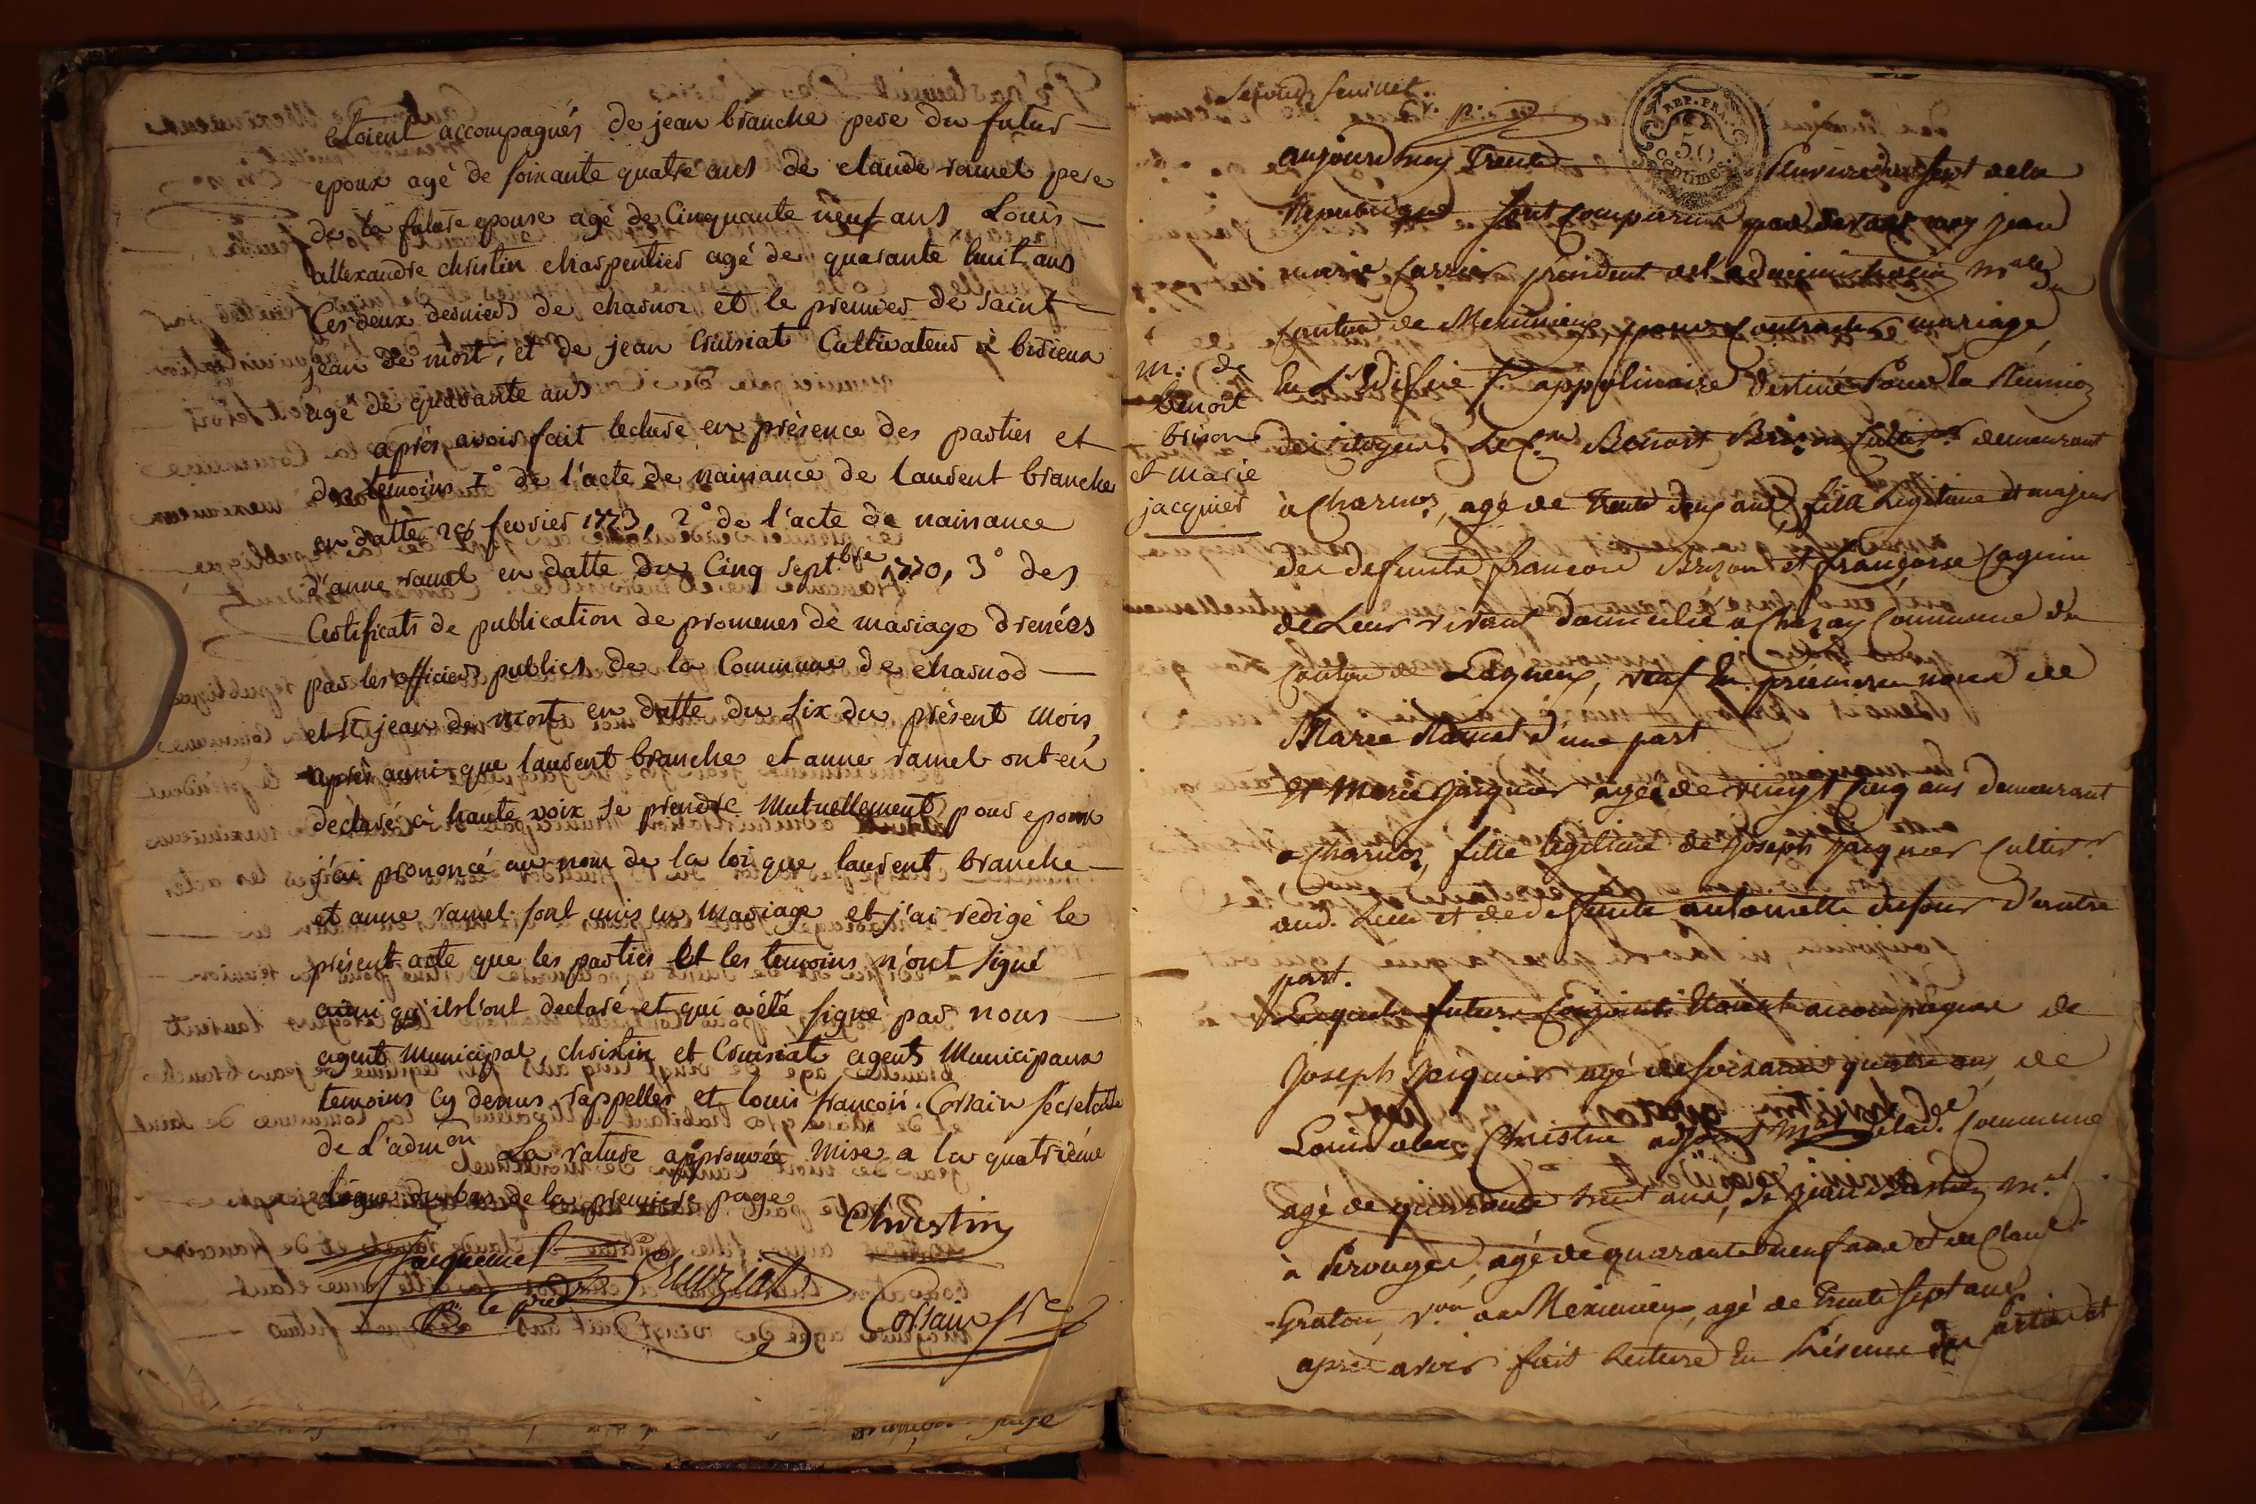 etoient accompagnés de jean branche pere du futur
epoux agé de soixante quatre ans de claude ramel pere
de la future epouse agé de Cinquante neuf ans Louis
allexandre christin charpentier agé de quarante huit ans
Ces deux derniers de charnoz et le premier de Saint
jean de niort, et de jean Cruisiat Cultivateur a
agé de quarante ans
après avoir fait lecture en présence des parties et
des temoins 1° de l'acte de naissance de laurent branche
en datte 28 fevrier 1773, 2° de l'acte de naissance
d'anne ramel en datte du Cinq Septbre 1770, 3° des
Certificats de publication de promesses de mariage dressées
par les officiers publics de la Commune de charnod
et St jean de niort en datte du six du présent mois,
après aussi que laurent branche et anne ramel ont eû
declaré à haute voix se prendre Mutuellement pour epoux
j'ai prononcé au nom de la loi que laurent branche
et anne ramel sont unis en mariage et j'ai redigé le
présent acte que les parties Et les temoins n'ont signé
ainsi qu'ils l'ont declaré et qui a été signé par nous
agent Municipal, christin et Cruisiat agents Municipaux
temoins Cy dessus rappellés et louis françois Corsain secretaire
de l'admon La rature approuvée mise a la quatrième
ligne du bas de la premiere page
Christin
Jacquemet
Cruiziat
Corsain Sre
Second feuillet.
aujourd'huy Trente
Republique sont comparus par devant moy jean
marie Carrier président de l'administration male du
Canton de Meximieux pour Contracter mariage
m. de
benoit
brison
et marie
jacquier
en L'Edifice St appolinaire destiné Pour la Réunion
des citoyens Le Cen Benoit Brison Cultivr demeurant
à Charnoz, agé de Trente deux ans fils Legitime et majeur
des defunts françois Brison et françoise
de Leur vivant domicilié a Chazay Commune du
Canton de Lagneux, veuf En premiere noces de
Marie Ramel d'une part
Et Marie Jacquier agée de vingt Cinq ans demeurant
a Charnoz, fille legitime de Joseph Jacquier Cultivr
aud. Lieu et de deffunte antoinette dufour d'autre
part.
Lesquels futurs Conjoints Etoient accompagnés de
Joseph Jacquier agé de soixante quatre ans, de
Louis alexe Christin adjoint mal de lade Commune
agé de quarante huit ans, de jean mal
à Perouges, agé de quarante neuf ans et de Claude
Graton, à Meximieux, agé de Trente sept ans
après avoir fait Lecture En Présence des parties et